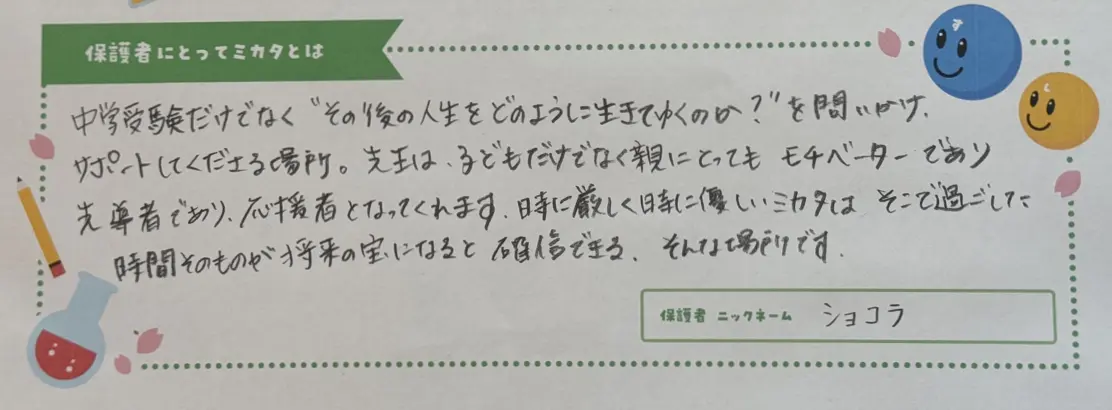 保護者にとってミカタとは
中学受験だけでなく“その後の人生をどのように生きてゆくのか?”を問いかけ、
サポートしてくださる場所。先生は、子どもだけでなく親にとってもモチベーターであり
先導者であり、応援者となってくれます。時に厳しく時に優しいミカタは そこで過ごした
時間そのものが将来の宝になると確信できる、そんな場所です。
保護者 ニックネーム ショコラ
す
し